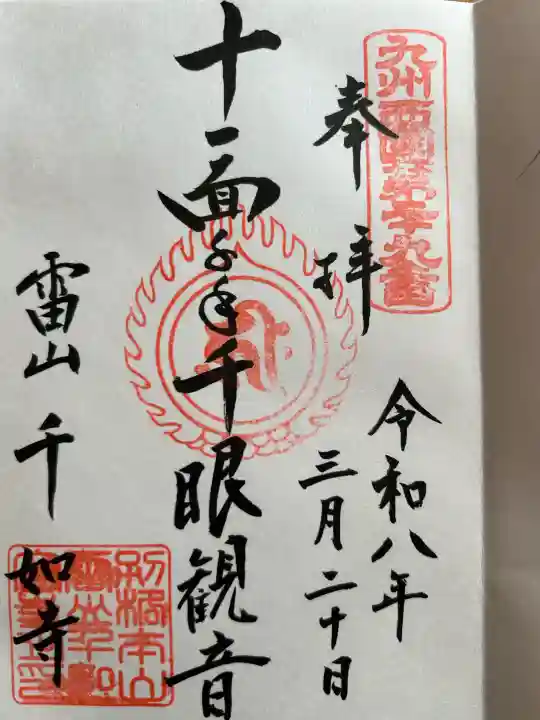 九州西国第二十九番
奉拝
令和八年
三月二十日
十一面千手千眼観音
雷山千如寺
別格本山
雷山千如